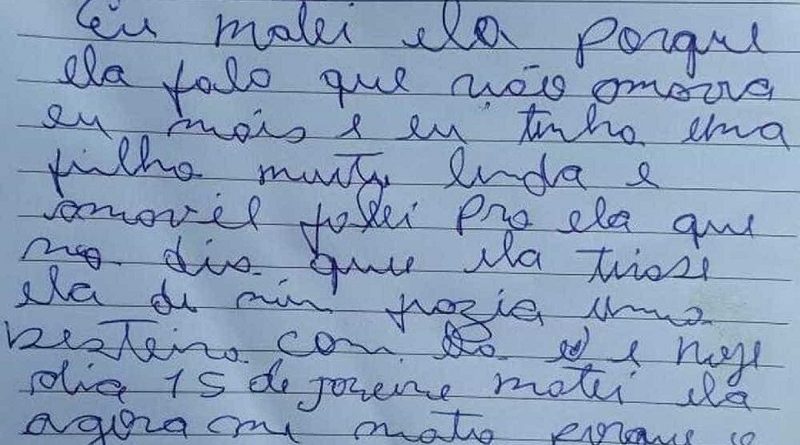 Eu matei ela porque
ela falo que não amava
eu mais e eu tinha uma
filha muito linda e
amovél falei pra ela que
no dia que ela tirase
ela de min fazia uma
besteira com e hoje
dia 15 de janeiro matei ela
agora me mato porque